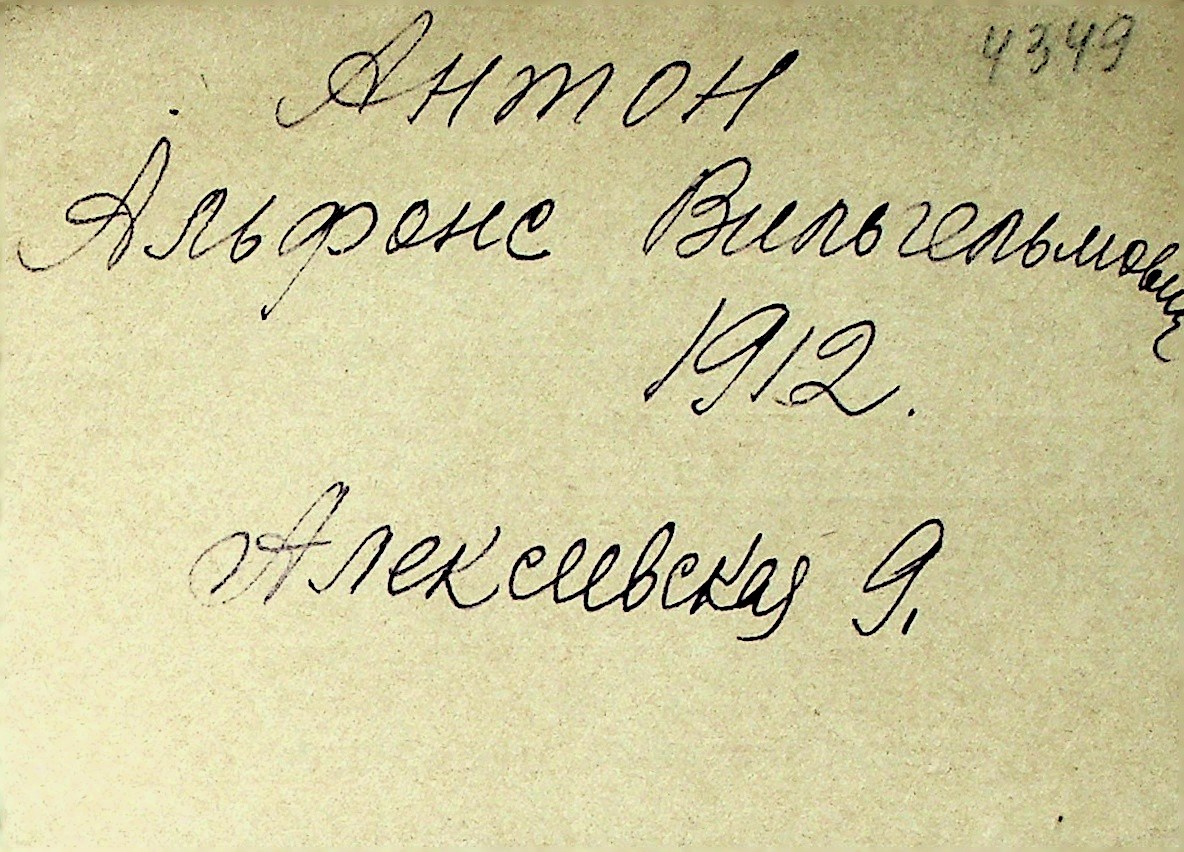 4349
Антон
Альфонс Вильгельмович
1912.
Алексеевская 9,